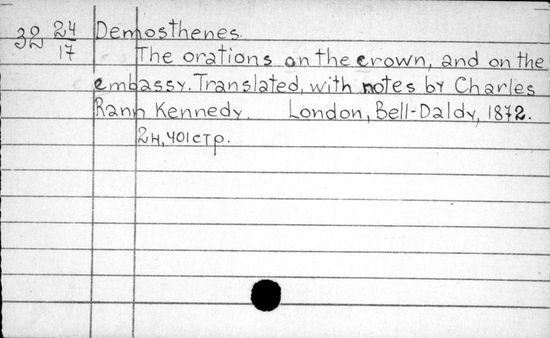 32 24/17 Demosthenes.
The orations on the crown, and on the
embassy. Translated, with notes by Charles
Rann Kennedy. London, Bell-Daldy, 1872.
2н, 401стр.